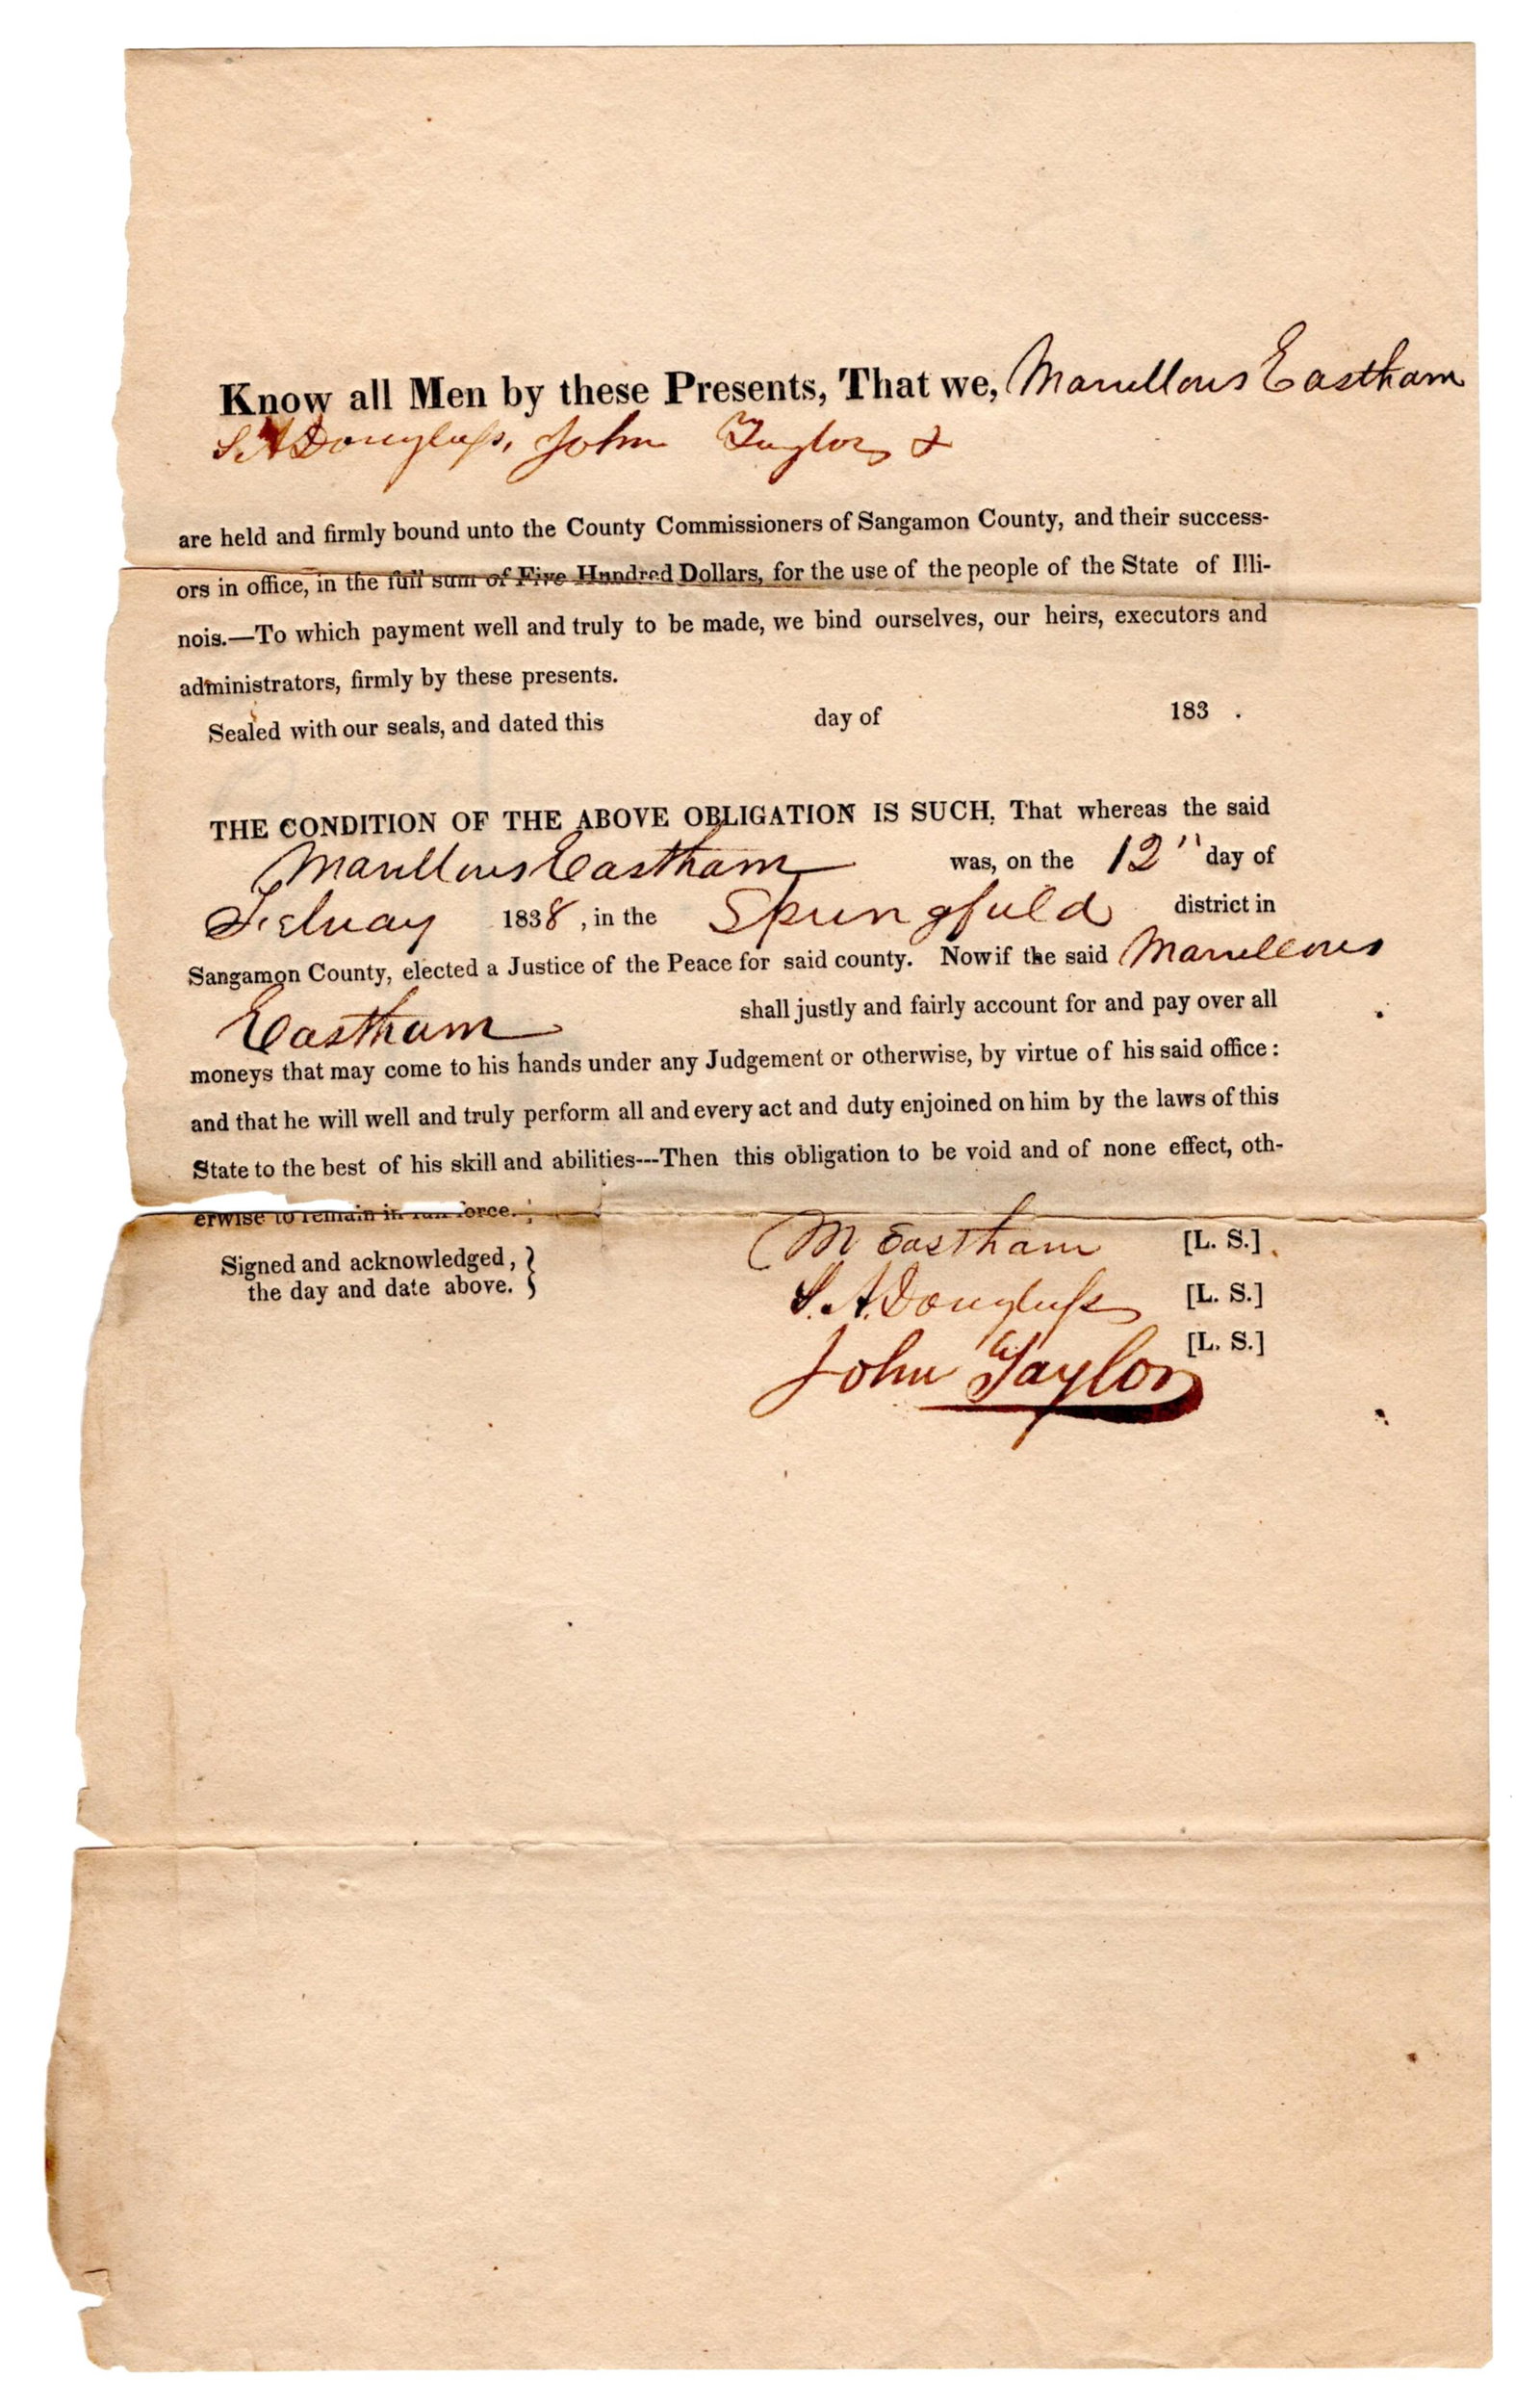 Know all Men by these Presents, That we, Marvellous Eastham
S. A Douglass, John Taylor &
are held and firmly bound unto the County Commissioners of Sangamon County, and their success-
ors in office, in the full sum of Five Hundred Dollars, for the use of the people of the State of Illi-
nois.—To which payment well and truly to be made, we bind ourselves, our heirs, executors and
administrators, firmly by these presents.
Sealed with our seals, and dated this day of 183 .
THE CONDITION OF THE ABOVE OBLIGATION IS SUCH, That whereas the said
Marvellous Eastham was, on the 12" day of
Februay 1838, in the Springfield district in
Sangamon County, elected a Justice of the Peace for said county. Now if the said Marvellous
Eastham shall justly and fairly account for and pay over all
moneys that may come to his hands under any Judgement or otherwise, by virtue of his said office:
and that he will well and truly perform all and every act and duty enjoined on him by the laws of this
State to the best of his skill and abilities---Then this obligation to be void and of none effect, oth-
erwise to remain in full force.
Signed and acknowledged, }
the day and date above. }
M Eastham [L. S.]
S. A. Douglass [L. S.]
John Taylor [L. S.]